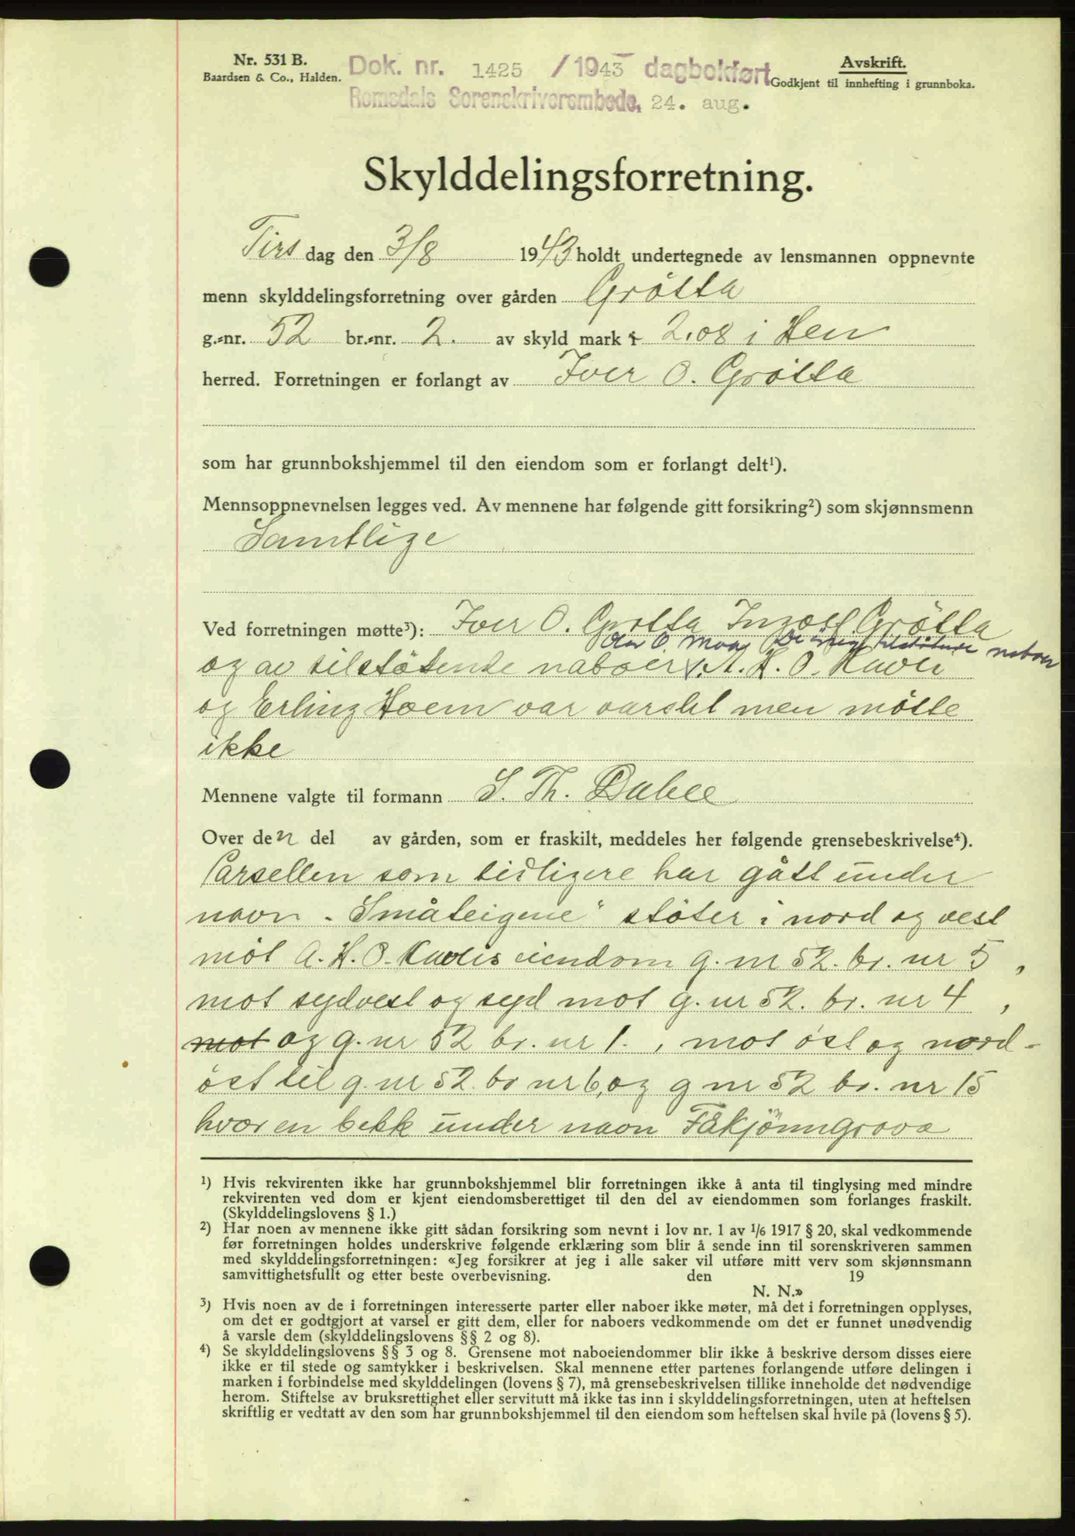 Nr. 531 B.
Baardsen & Co., Halden.
Dok. nr. 1425 /1943 dagbokført
Romsdals Sorenskriverembede, 24. aug.
Avskrift.
Godkjent til innhefting i grunnboka.
Skylddelingsforretning.
Tirsdag den 3/8 1943 holdt undertegnede av lensmannen oppnevnte
menn skylddelingsforretning over gården Grötta
g.-nr. 52 br.-nr. 2. av skyld mark 2.08 i Hen
herred. Forretningen er forlangt av Iver O. Grötta
som har grunnbokshjemmel til den eiendom som er forlangt delt¹).
Mennsoppnevnelsen legges ved. Av mennene har følgende gitt forsikring²) som skjønnsmenn
Samtlige
Ved forretningen møtte³): Iver O. Grötta Grötta
Olav O. Moa, De tilstötende naboer
og av tilstötende naboer A. H. O. Kavli
og Erling Hoem var varslet men mötte
ikke
Mennene valgte til formann S. Th. Dahle
Over den del av gården, som er fraskilt, meddeles her følgende grensebeskrivelse⁴).
Parsellen som tidligere har gått under
navn „Småteigene“ stöter i nord og vest
mot A. H. O. Kavlis eiendom g. nr 52. br. nr 5,
mot sydvest og syd mot g. nr 52. br. nr 4,
mot og g. nr 52 br. nr 1., mot öst og nord-
öst til g. nr 52. br nr 6, og g nr 52 br. nr 15
hvor en bekk under navn Fåkjönngrova
¹) Hvis rekvirenten ikke har grunnbokshjemmel blir forretningen ikke å anta til tinglysing med mindre
rekvirenten ved dom er kjent eiendomsberettiget til den del av eiendommen som forlanges fraskilt.
(Skylddelingslovens § 1.)
²) Har noen av mennene ikke gitt sådan forsikring som nevnt i lov nr. 1 av ¹/₆ 1917 § 20, skal vedkommende
før forretningen holdes underskrive følgende erklæring som blir å sende inn til sorenskriveren sammen
med skylddelingsforretningen: «Jeg forsikrer at jeg i alle saker vil utføre mitt verv som skjønnsmann
samvittighetsfullt og etter beste overbevisning. den 19
N. N.»
³) Hvis noen av de i forretningen interesserte parter eller naboer ikke møter, må det i forretningen opplyses,
om det er godtgjort at varsel er gitt dem, eller for naboers vedkommende om det er funnet unødvendig
å varsle dem (skylddelingslovens §§ 2 og 8).
⁴) Se skylddelingslovens §§ 3 og 8. Grensene mot naboeiendommer blir ikke å beskrive dersom disses eiere
ikke er til stede og samtykker i beskrivelsen. Skal mennene etter partenes forlangende utføre delingen i
marken i forbindelse med skylddelingen (lovens § 7), må grensebeskrivelsen tillike inneholde det nødvendige
herom. Stiftelse av bruksrettighet eller servitutt må ikke tas inn i skylddelingsforretningen, uten at heftelsen
skriftlig er vedtatt av den som har grunnbokshjemmel til den eiendom som heftelsen skal hvile på (lovens § 5).